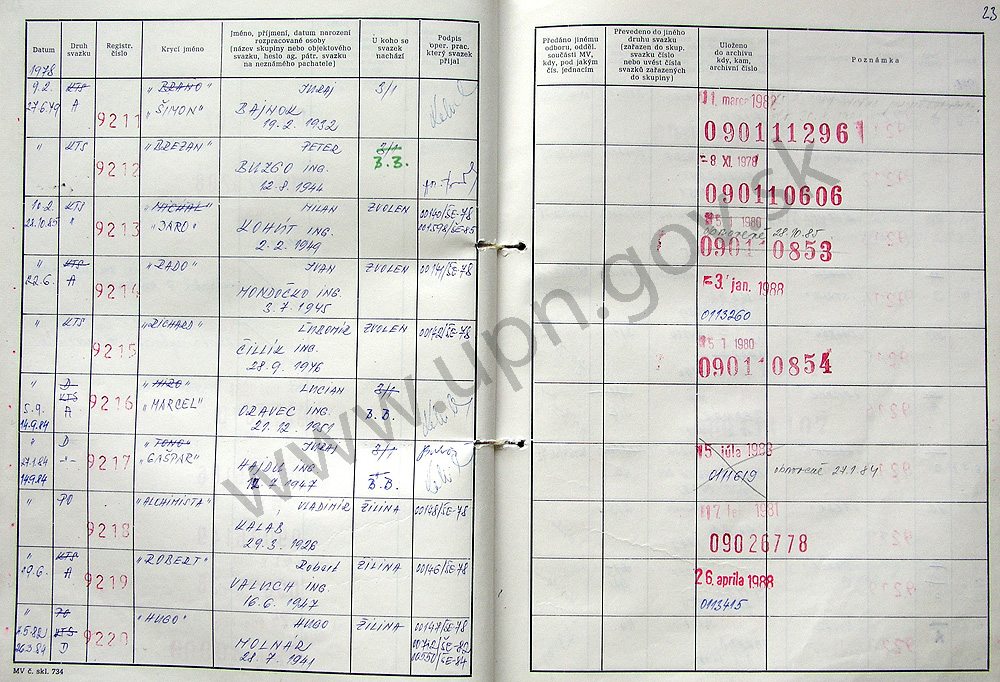 23
Datum
Druh svazku
Registr. číslo
Krycí jméno
Jméno, příjmení, datum narození rozpracované osoby (název skupiny nebo objektového svazku, heslo ag. pátr. svazku na neznámého pachatele)
U koho se svazek nachází
Podpis oper. prac. který svazek přijal
Předáno jinému odboru, odděl. součásti MV, kdy, pod jakým čís. jednacím
Převedeno do jiného druhu svazku (zařazen do skup. svazku číslo nebo uvést čísla svazků zařazených do skupiny)
Uloženo do archivu kdy, kam, archivní číslo
Poznámka
1978
9.2. KTS 9211 „BRANO" JURAJ S/1
27.6.79 A „ŠIMON" BAJNOK
19.2. 1932
11. marca 1982
090111296
" KTS 9212 „BREZAN" PETER S/1
BUZGO ING. B.B.
12.8. 1944
-8 XI. 1978
090110606
10.2. KTS 9213 „MICHAL" MILAN ZVOLEN 00140/ŠE-78
28.10.85 " „JARO" KOHÚT ING. 001598/ŠE-85
2.2. 1949
1980 obnovené 28.10.85
0901 0853
" KTS 9214 „RADO" IVAN ZVOLEN 00141/ŠE-78
22.6. A MONDOČKO ING.
3.7. 1945
-3. jan. 1988
0113260
" KTS 9215 „RICHARD" ĽUBOMÍR ZVOLEN 00142/ŠE-78
ČILLÍK ING.
28.9. 1946
1980
09010854
" D 9216 „MIRO" LUCIAN S/1
5.9. KTS „MARCEL" ORAVEC ING. B.B.
14.9.84 A 21.12. 1951
" D 9217 „TONO" JURAJ S/1
27.1.84 -"- „GAŠPAR" HAJDU ING. B.B.
14.9.84 12.7. 1947
5. júla 1983
0111619 obnovené 27.1.84
" PO 9218 „ALCHIMISTA" VLADIMÍR ŽILINA 00148/ŠE-78
KALAB
29.3. 1926
17 feb. 1981
09026778
" KTS 9219 „ROBERT" Robert ŽILINA 00146/ŠE-78
19.6. A VALUCH ING.
16.6. 1947
26. apríla 1988
0113415
" PO 9220 „HUGO" HUGO ŽILINA 00147/ŠE-78
4.5.82 KTS MOLNÁR 00742/ŠE-82
26.3.84 D 28.7. 1941 00550/ŠE-84
MV č. skl. 734
www.upn.gov.sk